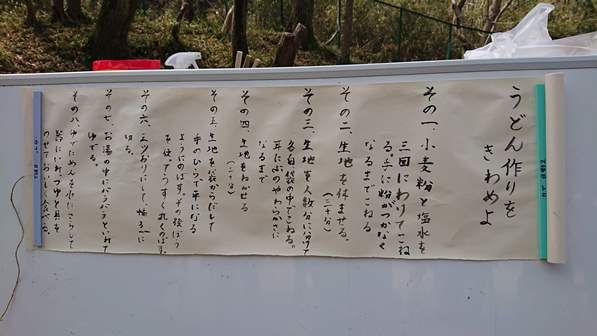 うどん作りを
きわめよ
その一、小麦粉と塩水を
三回にわけてこね
る。手に粉がつかなく
なるまでこねる
その二、生地を休ませる。
(三十分)
その三、生地を人数分にわけて
各自袋の中でこねる。
耳たぶのやわらかさに
なるまで
その四、生地をねかせる
(二十分)
その五、生地を袋からだして
手のひらで平になる
ようにのばす。その後ぼう
を使ってうすく丸くのばす。
その六、三つおりにして、幅3㎜に
切る。
その七、お湯の中にパラパラといれて
ゆでる。
その八、ゆでためんを水にさらして
器にいれ、つゆと具を
のせておいしく食べる。